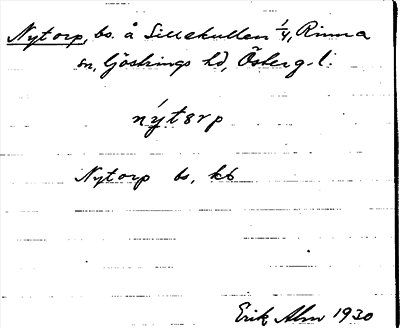 Nytorp, bs. å Sillekullen 1/4, Rinna
sn, Göstrings hd, Österg. l.
nýtorp
Nytorp bs, kb
Erik Alm 1930